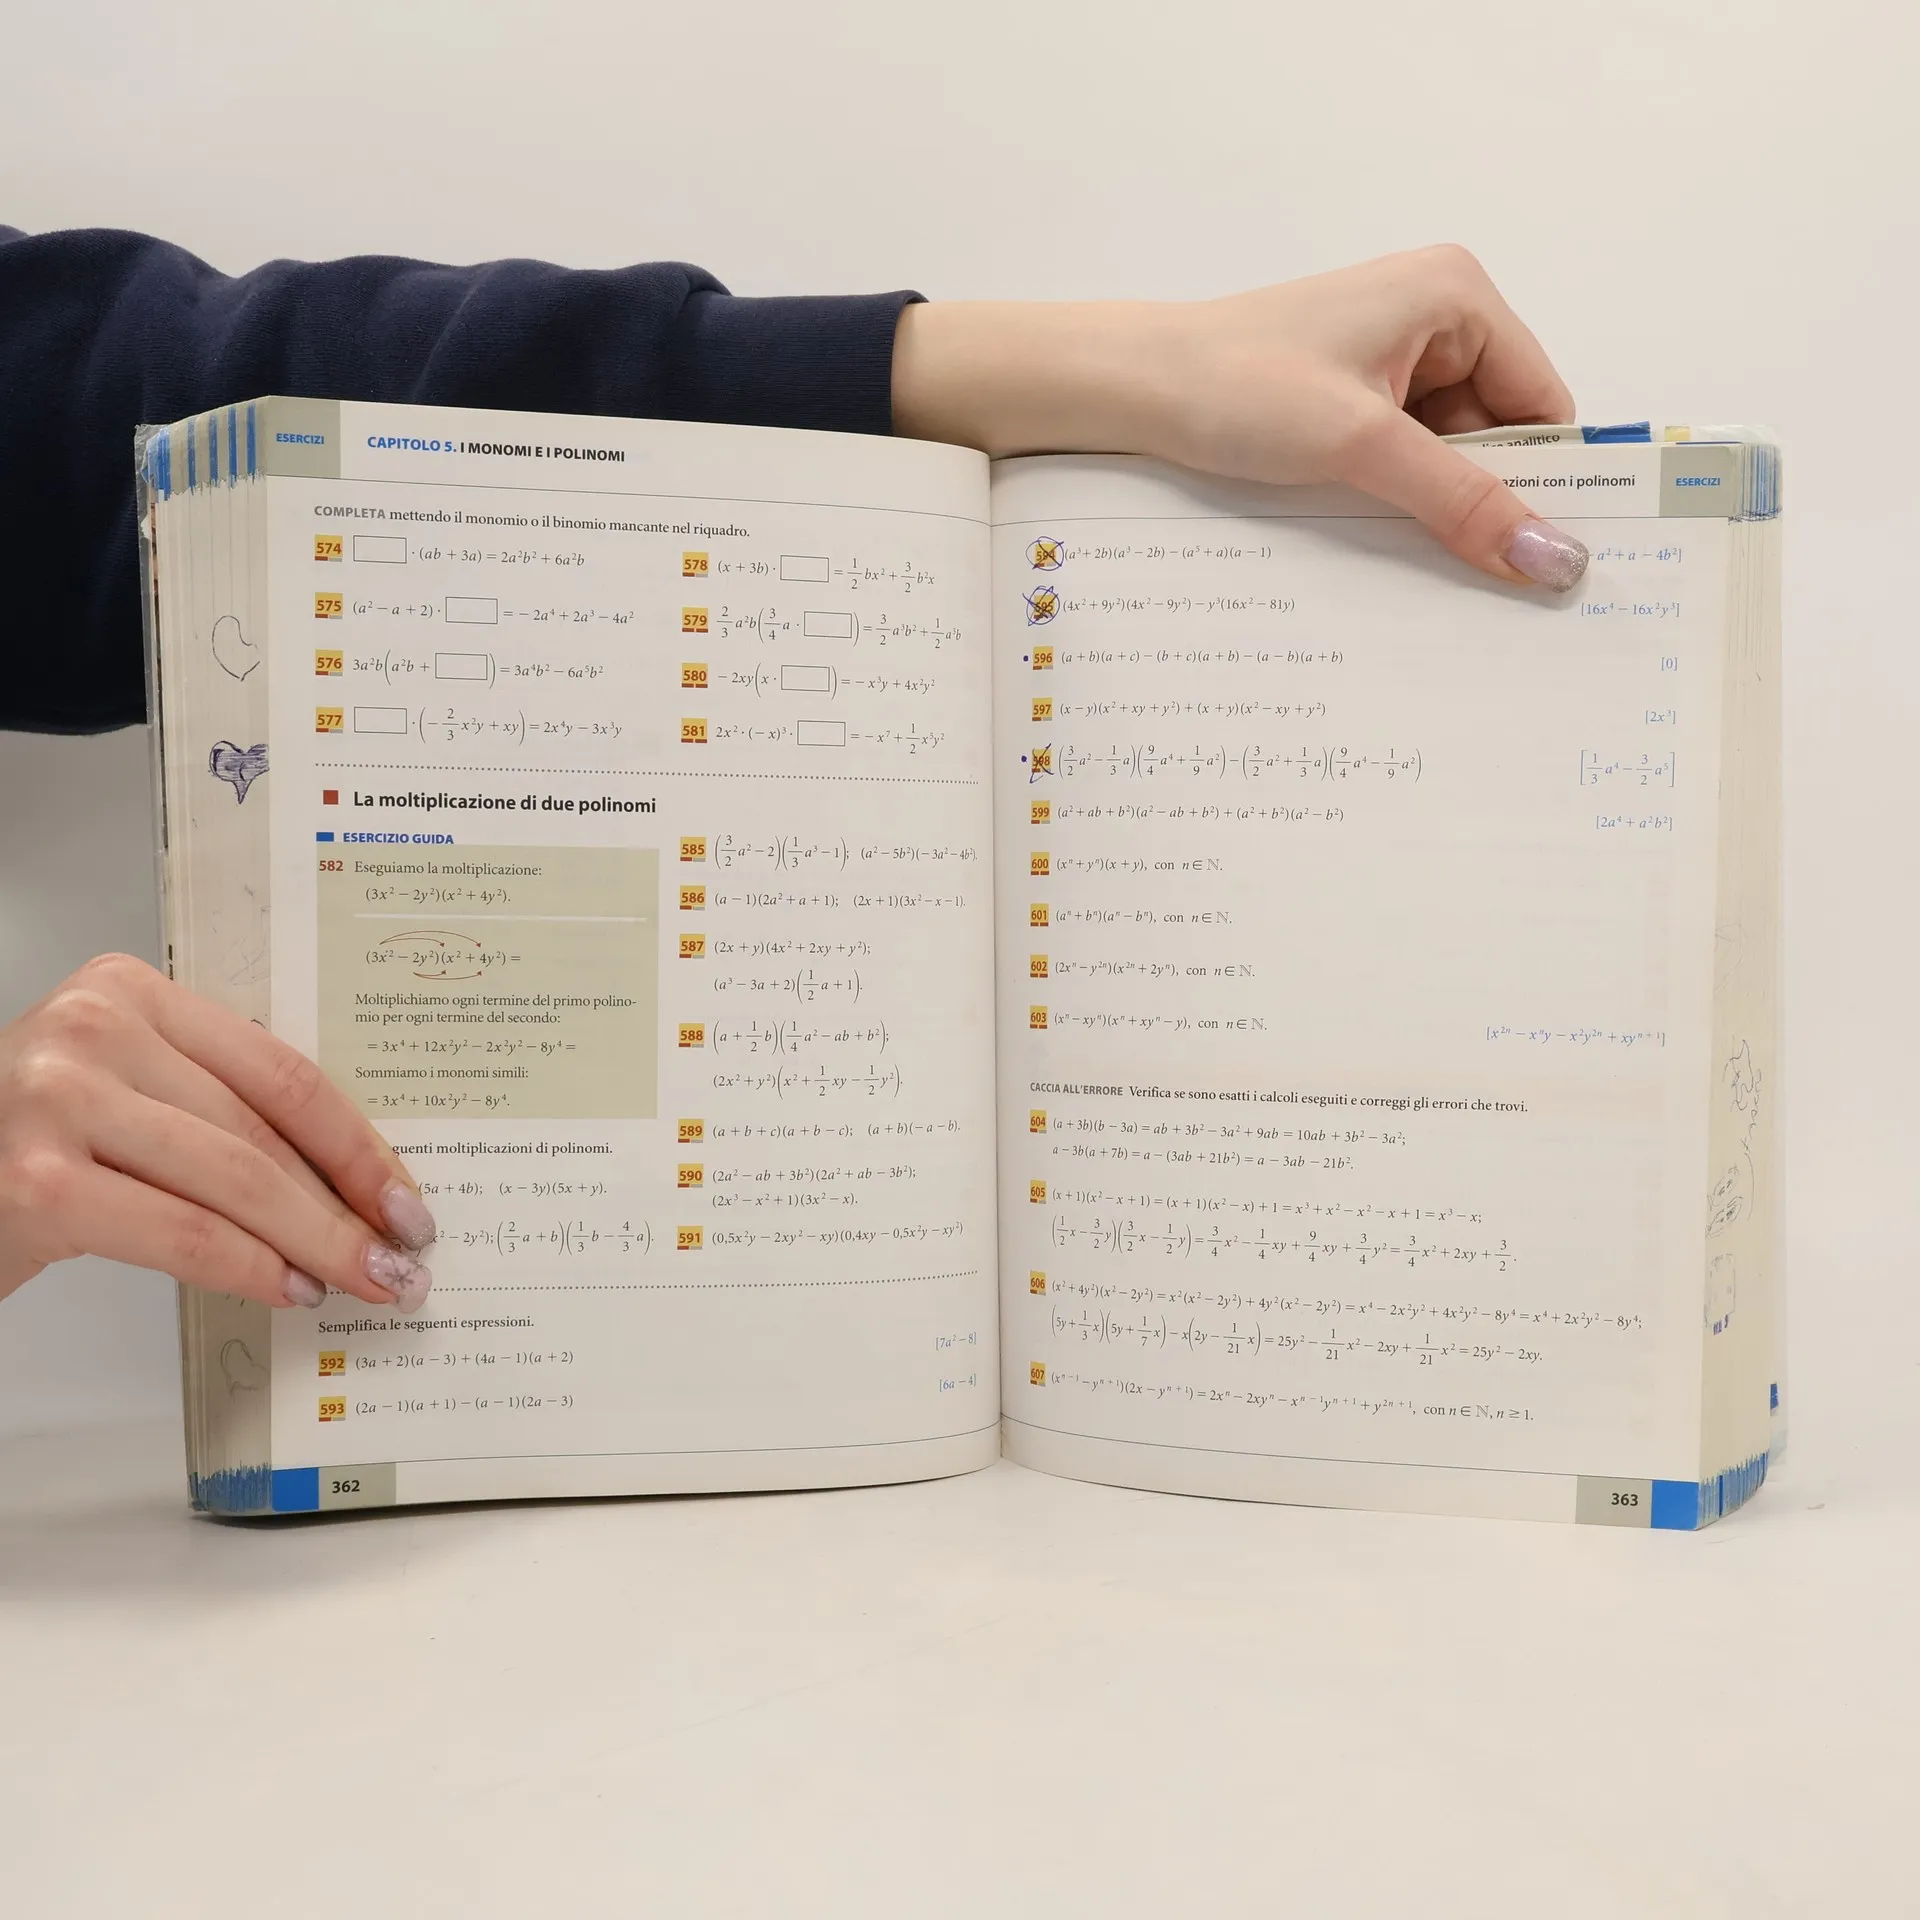 ESERCIZI
CAPITOLO 5. I MONOMI E I POLINOMI
COMPLETA mettendo il monomio o il binomio mancante nel riquadro.
574 □ · (ab + 3a) = 2a²b² + 6a²b
575 (a² − a + 2) · □ = − 2a⁴ + 2a³ − 4a²
576 3a²b(a²b + □) = 3a⁴b² − 6a⁵b²
577 □ · (− 2/3 x²y + xy) = 2x⁴y − 3x³y
578 (x + 3b) · □ = 1/2 bx² + 3/2 b²x
579 2/3 a²b(3/4 a · □) = 3/2 a³b² + 1/2 a³b
580 − 2xy(x · □) = − x³y + 4x²y²
581 2x² · (− x)³ · □ = − x⁷ + 1/2 x³y²
La moltiplicazione di due polinomi
ESERCIZIO GUIDA
582 Eseguiamo la moltiplicazione:
(3x² − 2y²)(x² + 4y²).
(3x² − 2y²)(x² + 4y²) =
Moltiplichiamo ogni termine del primo polino-
mio per ogni termine del secondo:
= 3x⁴ + 12x²y² − 2x²y² − 8y⁴ =
Sommiamo i monomi simili:
= 3x⁴ + 10x²y² − 8y⁴.
moltiplicazioni di polinomi.
(5a + 4b); (x − 3y)(5x + y).
− 2y²); (2/3 a + b)(1/3 b − 4/3 a).
585 (3/2 a² − 2)(1/3 a³ − 1); (a² − 5b²)(− 3a² − 4b²).
586 (a − 1)(2a² + a + 1); (2x + 1)(3x² − x − 1).
587 (2x + y)(4x² + 2xy + y²);
(a³ − 3a + 2)(1/2 a + 1).
588 (a + 1/2 b)(1/4 a² − ab + b²);
(2x² + y²)(x² + 1/2 xy − 1/2 y²).
589 (a + b + c)(a + b − c); (a + b)(− a − b).
590 (2a² − ab + 3b²)(2a² + ab − 3b²);
(2x³ − x² + 1)(3x² − x).
591 (0,5x²y − 2xy² − xy)(0,4xy − 0,5x²y − xy²)
Semplifica le seguenti espressioni.
592 (3a + 2)(a − 3) + (4a − 1)(a + 2) [7a² − 8]
593 (2a − 1)(a + 1) − (a − 1)(2a − 3) [6a − 4]
362
analitico
azioni con i polinomi
ESERCIZI
594 (a³ + 2b)(a³ − 2b) − (a⁵ + a)(a − 1) a² + a − 4b²]
595 (4x² + 9y²)(4x² − 9y²) − y³(16x² − 81y) [16x⁴ − 16x²y³]
596 (a + b)(a + c) − (b + c)(a + b) − (a − b)(a + b) [0]
597 (x − y)(x² + xy + y²) + (x + y)(x² − xy + y²) [2x³]
598 (3/2 a² − 1/3 a)(9/4 a⁴ + 1/9 a²) − (3/2 a² + 1/3 a)(9/4 a⁴ − 1/9 a²) [1/3 a⁴ − 3/2 a⁵]
599 (a² + ab + b²)(a² − ab + b²) + (a² + b²)(a² − b²) [2a⁴ + a²b²]
600 (xⁿ + yⁿ)(x + y), con n ∈ ℕ.
601 (aⁿ + bⁿ)(aⁿ − bⁿ), con n ∈ ℕ.
602 (2xⁿ − y²ⁿ)(x²ⁿ + 2yⁿ), con n ∈ ℕ.
603 (xⁿ − xyⁿ)(xⁿ + xyⁿ − y), con n ∈ ℕ. [x²ⁿ − xⁿy − x²y²ⁿ + xyⁿ⁺¹]
CACCIA ALL'ERRORE Verifica se sono esatti i calcoli eseguiti e correggi gli errori che trovi.
604 (a + 3b)(b − 3a) = ab + 3b² − 3a² + 9ab = 10ab + 3b² − 3a²;
a − 3b(a + 7b) = a − (3ab + 21b²) = a − 3ab − 21b².
605 (x + 1)(x² − x + 1) = (x + 1)(x² − x) + 1 = x³ + x² − x² − x + 1 = x³ − x;
(1/2 x − 3/2 y)(3/2 x − 1/2 y) = 3/4 x² − 1/4 xy + 9/4 xy + 3/4 y² = 3/4 x² + 2xy + 3/2.
606 (x² + 4y²)(x² − 2y²) = x²(x² − 2y²) + 4y²(x² − 2y²) = x⁴ − 2x²y² + 4x²y² − 8y⁴ = x⁴ + 2x²y² − 8y⁴;
(5y + 1/3 x)(5y + 1/7 x) − x(2y − 1/21 x) = 25y² − 1/21 x² − 2xy + 1/21 x² = 25y² − 2xy.
607 (xⁿ⁻¹ − yⁿ⁺¹)(2x − yⁿ⁺¹) = 2xⁿ − 2xyⁿ − xⁿ⁻¹yⁿ⁺¹ + y²ⁿ⁺¹, con n ∈ ℕ, n ≥ 1.
363